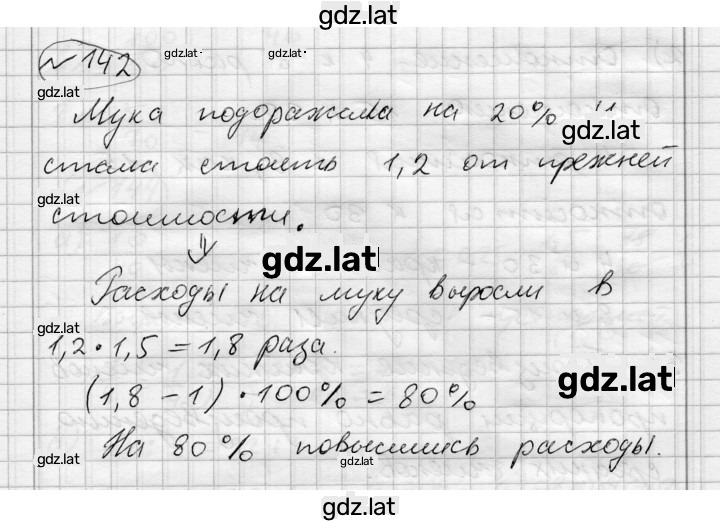 gdz.lat
№142
gdz.lat
gdz.lat
gdz.lat
Мука подоражала на 20% и
gdz.lat
стала стоить 1,2 от прежней
gdz.lat
стоимости.
⇓
gdz.lat
Расходы на муку выросли в
gdz.lat
1,2 • 1,5 = 1,8 раза.
gdz.lat
(1,8 - 1) • 100% = 80%
На 80% повысились расходы.
gdz.lat
gdz.lat
gdz.lat